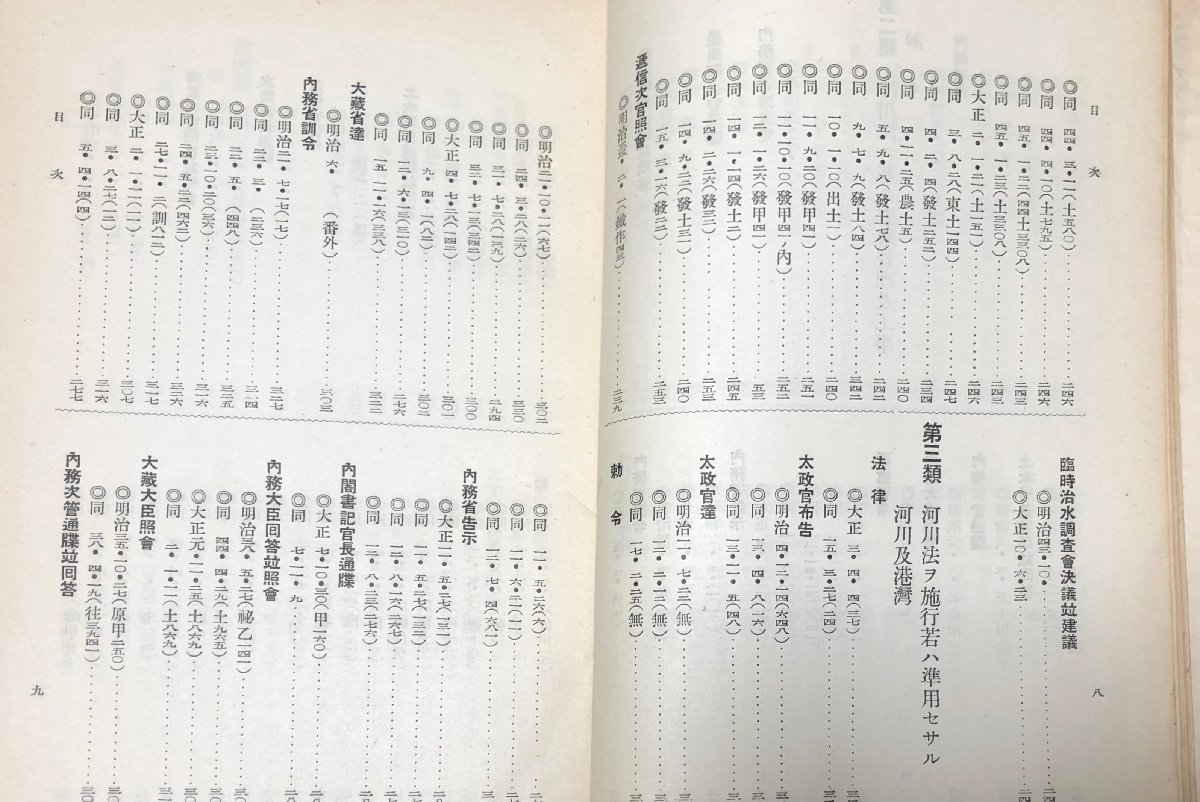 目次
◎同 四四・三・二一(土五八〇)
◎同 四四・四・一〇(土七九五) 二四六
◎同 四五・一・二二(四四土三三〇八) 二四三
◎同 四五・一・二三(土三三〇八) 二四三
◎大正 二・一・二一(土一五) 二四六
◎同 三・八・二八(東土一四四) 二四七
◎同 四・二・四(發土二五二) 二三四
◎同 四・一一・二五(農土五) 二四〇
◎同 五・九・八(發土七八) 二四一
◎同 九・七・九(發土八四) 二四二
◎同 一〇・一・一〇(出土一) 二四〇
◎同 一一・九・二〇(發甲四一) 二五一
◎同 一一・一〇・二〇(發甲四一ノ內) 二五二
◎同 一二・一・二六(發甲四) 五三
◎同 一四・一・一四(發土二) 二四五
◎同 一四・二・二六(發三) 二五三
◎同 一四・九・二三(發土三一) 二四〇
◎同 一五・三・一六(發二二) 二五三
遞信次官照會
二三九
臨時治水調査會決議竝建議
◎明治四三・一〇・
◎大正一〇・六・二三
第三類 河川法ヲ施行若ハ準用セサル
河川及港灣
法律
◎大正 三・四・四(三七)
◎同 一五・三・二七(二四)
太政官布告
◎明治 四・一二・一四(六四八)
◎同 六・八・(二六)
◎同 一三・一一・五(四八)
太政官達
◎明治一一・七・二三(無)
◎同 一三・二・三(無)
◎同 一七・二・二五(無)
勅令
八
◎明治三一・一〇・一一(六七) 三〇二
◎同 二四・三・二八(二六) 三三〇
◎同 三一・七・二八(一三九) 二九四
◎同 三三・七・一三(三四二) 三〇〇
◎大正 四・七・二八(一四二) 三〇一
◎同 九・四・一(八二) 三〇二
◎同 一二・六・一三(三一〇) 二七六
◎同 一五・一一・二六(三三八) 三二二
大藏省達
◎明治 六・ (番外) 三〇三
內務省訓令
◎明治二一・七・一七(一七) 三二七
◎同 二二・三・(二三六) 三一四
◎同 二二・五・(四四八) 三二五
◎同 二三・一〇・二〇(三六) 三一六
◎同 二四・五・二三(四六二) 三三六
◎同 二七・一一・二(訓八二二) 三一七
◎大正 二・一・二一(一一) 三〇七
◎同 三・八・二七(一二) 三一六
◎同 五・四・一四(四) 二七七
目次
◎同 一一・五・二六(六)
◎同 一一・六・二一(一一)
◎同 一三・七・四(六八一)
內務省告示
◎大正一一・五・二七(一三一)
◎同 一一・五・二七(一三二)
◎同 一二・八・一六(二六七)
◎同 一二・八・二三(二七六)
內閣書記官長通牒
◎大正 七・一〇・三〇(甲一六〇)
◎同 七・一一・九
內務大臣回答竝照會
◎明治三八・五・二七(祕乙一四一)
◎同 四四・四・二九(土九六五)
◎大正元・一一・二五(土八六九)
◎同 二・一・二一(土八六九)
大藏大臣照會
◎明治三五・一〇・二七(原甲二五〇)
◎同 三八・四・一九(往三九四一)
內務次管通牒竝回答
九